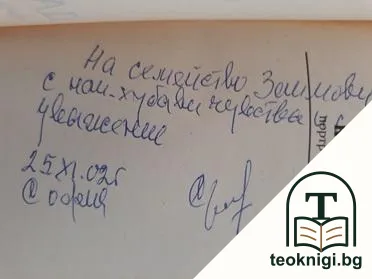 На семейство Заимови
с най-хубави чувства
уважение
25 XI. 02 г
София
teoknigi.bg